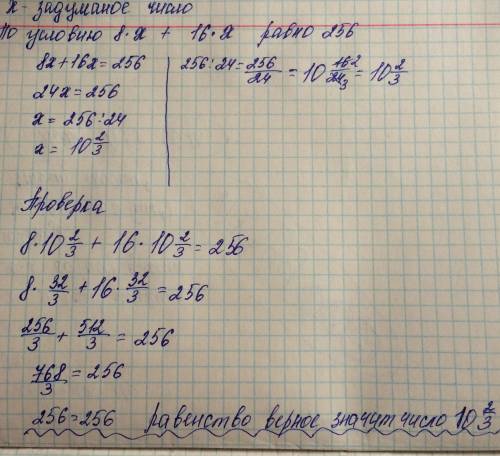 х - задуманое число
По условию 8·х + 16·х равно 256
8х+16х=256
24х=256
х=256:24
х= 10 2/3
256:24= 256/24 = 10 16 2/24 3 = 10 2/3
Проверка
8·10 2/3 + 16·10 2/3 = 256
8· 32/3 +16· 32/3 = 256
256/3 + 512/3 = 256
768/3 = 256
256=256 равенство верное значут число 10 2/3